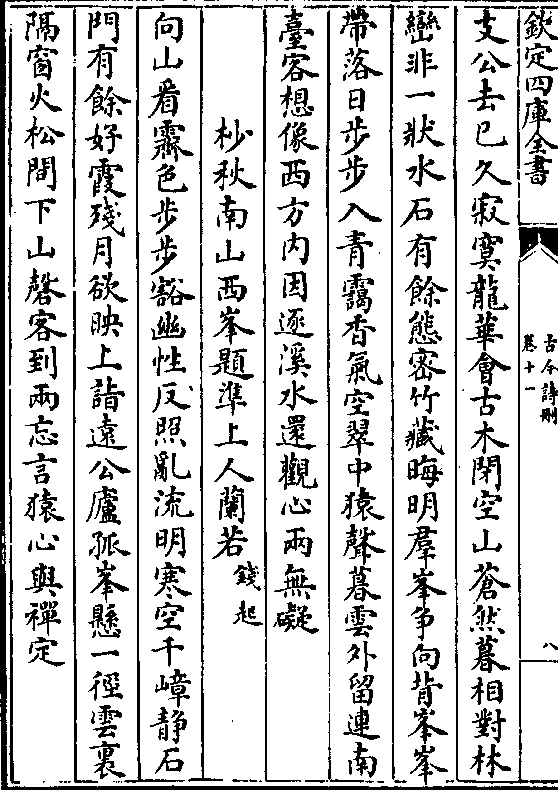 欽定四庫全書
古今詩刪
卷十一
八
支公去已久寂寞龍華會古木閉空山蒼然暮相對林
巒非一狀水石有餘態密竹藏晦明羣峯爭向背峯峯
帶落日步步入青靄香氣空翠中猿聲暮雲外留連南
臺客想像西方內因逐溪水還觀心兩無礙
杪秋南山西峯題準上人蘭若
錢起
向山看霽色步步豁幽性反照亂流明寒空千嶂靜石
門有餘好霞殘月欲映上詣遠公廬孤峯懸一徑雲裏
隔窗火松間下山磬客到兩忘言猿心與禪定